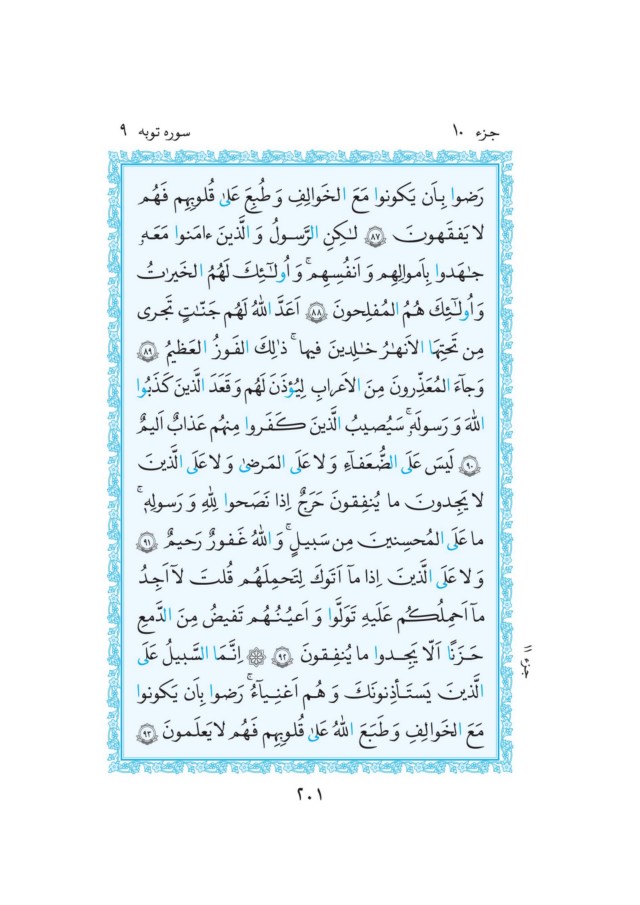 جزء ۱۰
سوره توبه ۹
رَضوا بِأَن يَكونوا مَعَ الخَوالِفِ وَ طُبِعَ عَلىٰ قُلوبِهِم فَهُم
لا يَفقَهونَ ﴿۸۷﴾ لٰكِنِ الرَّسولُ وَ الَّذينَ ءامَنوا مَعَهٗ
جٰهَدوا بِاَموالِهِم وَ اَنفُسِهِم ۚ وَ اُولٰٓئِكَ لَهُمُ الخَيرٰتُ
وَ اُولٰٓئِكَ هُمُ المُفلِحونَ ﴿۸۸﴾ اَعَدَّ اللّٰهُ لَهُم جَنّٰتٍ تَجرى
مِن تَحتِهَا الاَنهٰرُ خٰلِدينَ فيها ۚ ذٰلِكَ الفَوزُ العَظيمُ ﴿۸۹﴾
وَ جآءَ المُعَذِّرونَ مِنَ الاَعرابِ لِيُؤذَنَ لَهُم وَ قَعَدَ الَّذينَ كَذَبُوا
اللّٰهَ وَ رَسولَهٗ ۚ سَيُصيبُ الَّذينَ كَفَروا مِنهُم عَذابٌ اَليمٌ
﴿۹۰﴾ لَيسَ عَلَى الضُّعَفآءِ وَ لا عَلَى المَرضىٰ وَ لا عَلَى الَّذينَ
لا يَجِدونَ ما يُنفِقونَ حَرَجٌ اِذا نَصَحوا لِلّٰهِ وَ رَسولِهٖ ۚ
ما عَلَى المُحسِنينَ مِن سَبيلٍ ۚ وَ اللّٰهُ غَفورٌ رَحيمٌ ﴿۹۱﴾
وَ لا عَلَى الَّذينَ اِذا مآ اَتَوكَ لِتَحمِلَهُم قُلتَ لآ اَجِدُ
مآ اَحمِلُكُم عَلَيهِ تَوَلَّوا وَ اَعيُنُهُم تَفيضُ مِنَ الدَّمعِ
حَزَنًا اَلّا يَجِدوا ما يُنفِقونَ ﴿۹۲﴾ ۞ اِنَّمَا السَّبيلُ عَلَى
الَّذينَ يَستَأذِنونَكَ وَ هُم اَغنِيآءُ ۚ رَضوا بِأَن يَكونوا
مَعَ الخَوالِفِ وَ طَبَعَ اللّٰهُ عَلىٰ قُلوبِهِم فَهُم لا يَعلَمونَ ﴿۹۳﴾
جزء ۱۱
۲۰۱